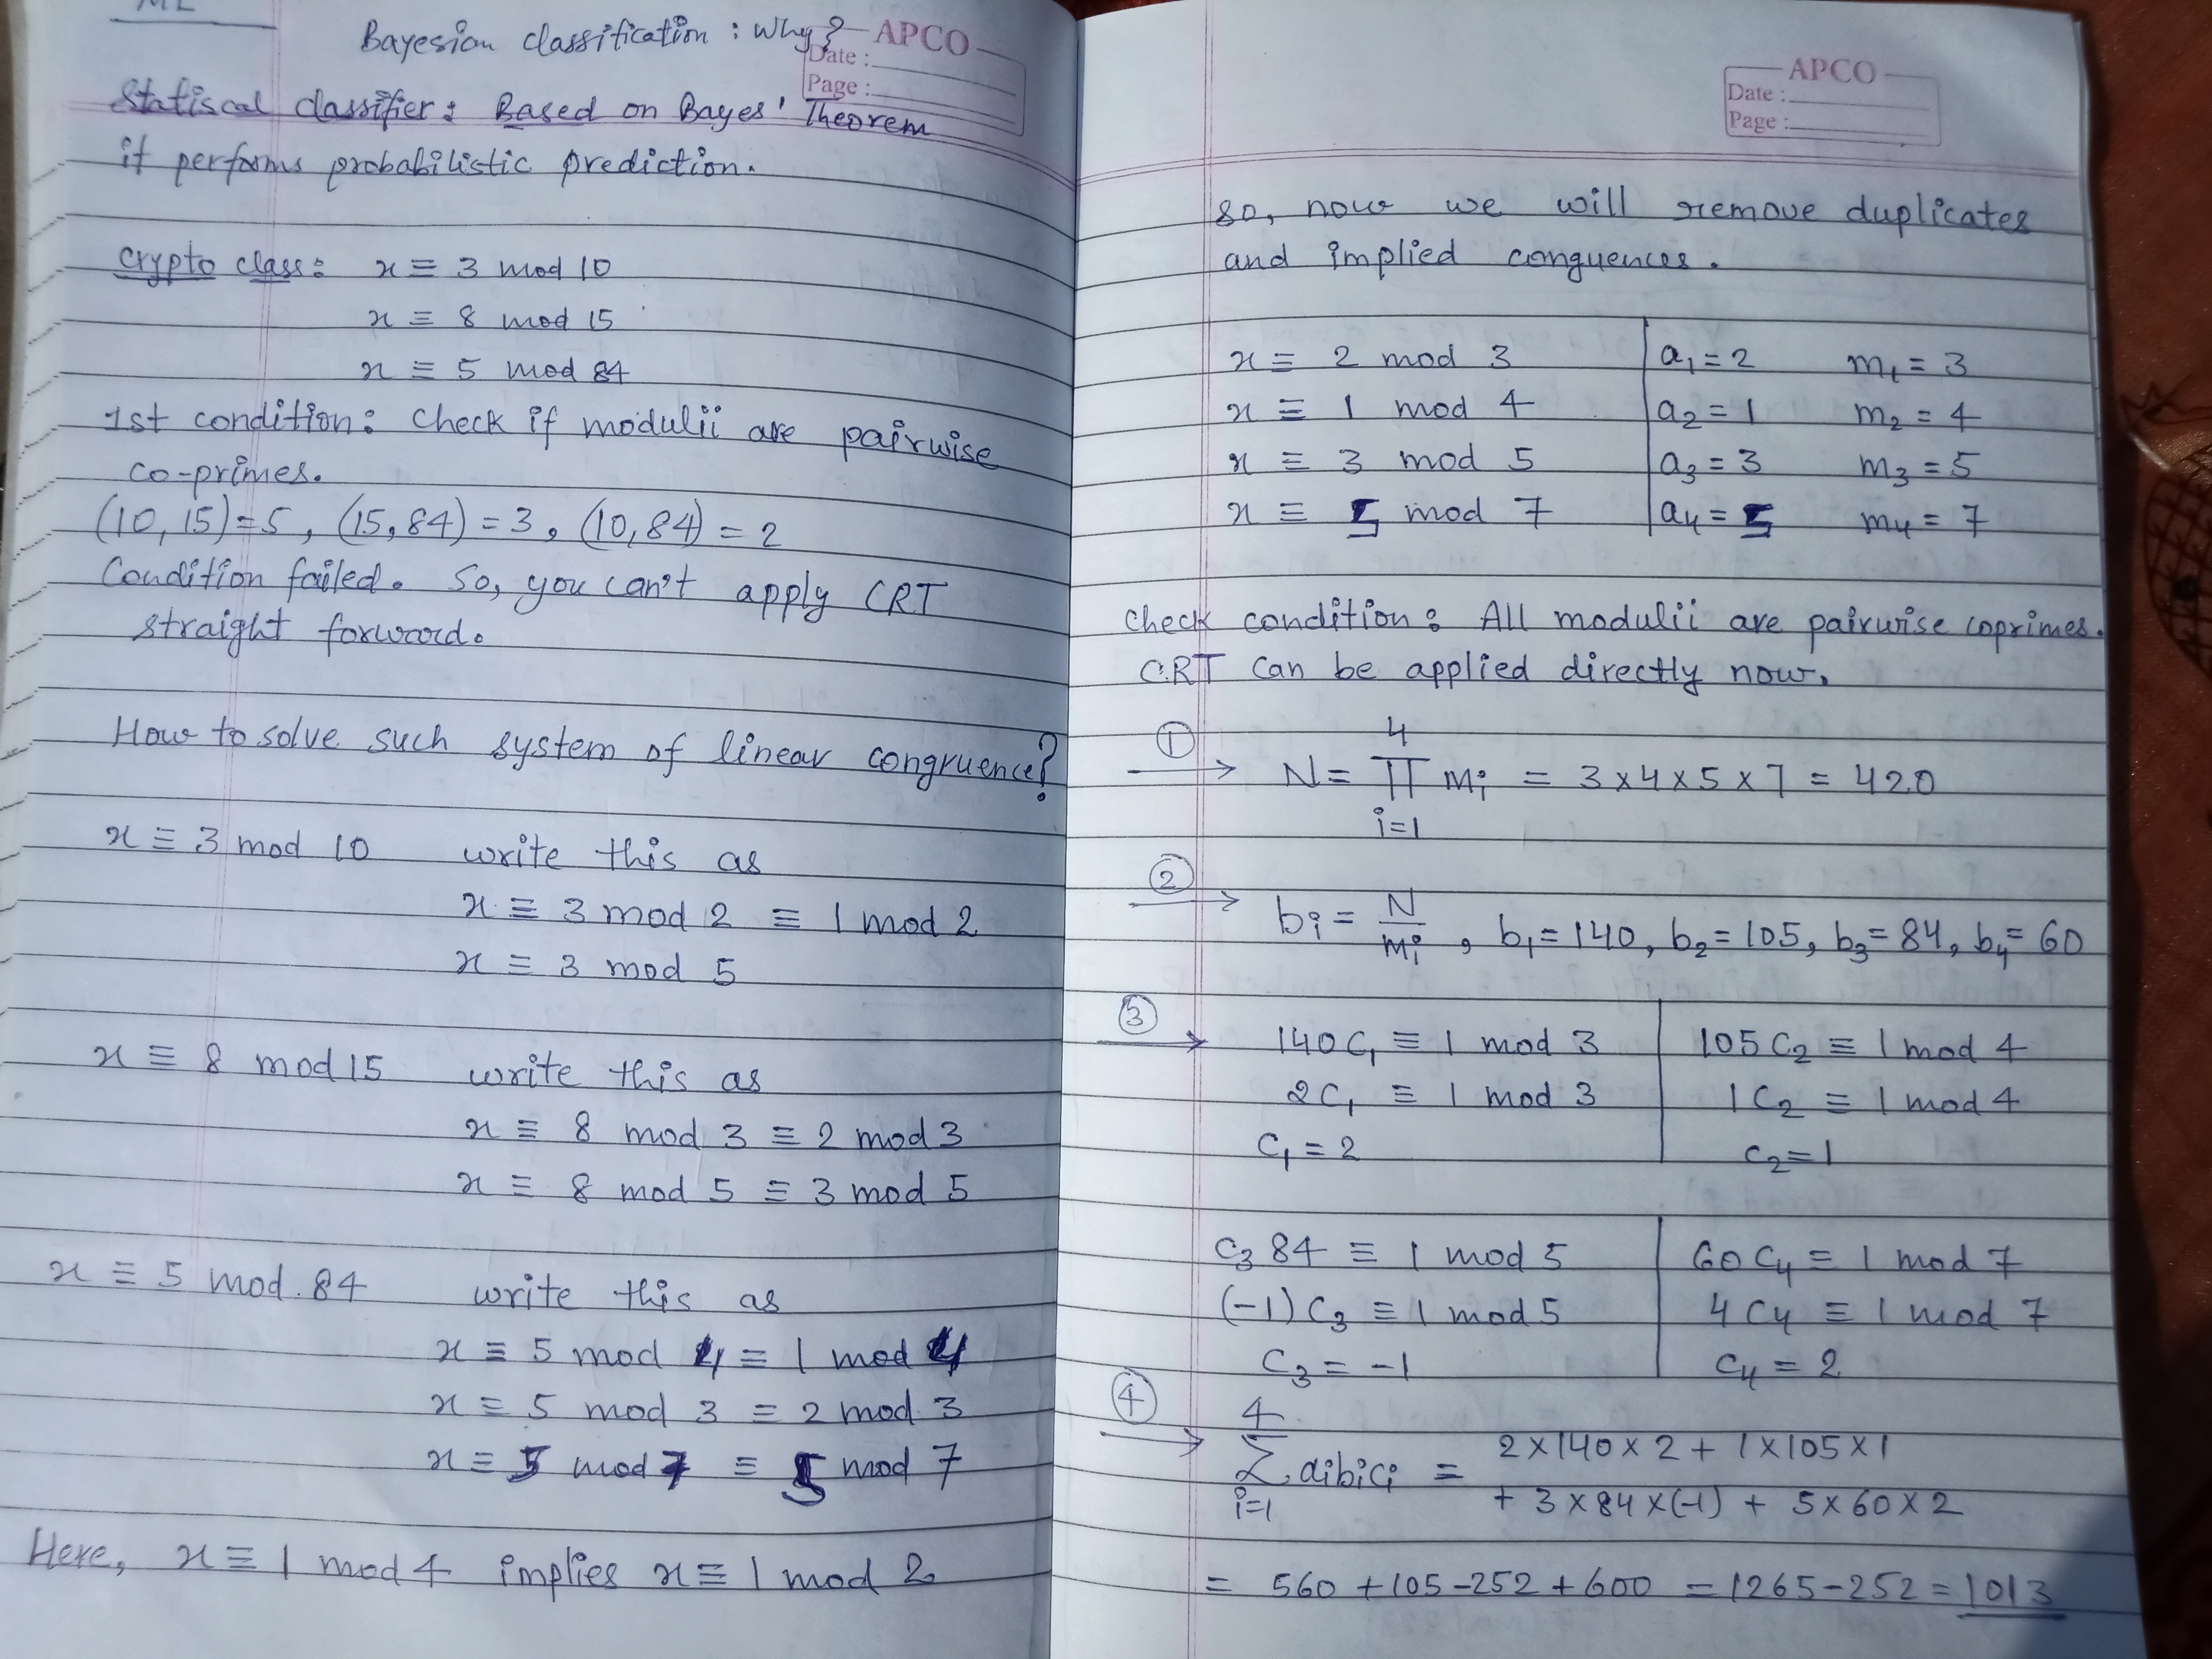 ML
Bayesian classification : Why?
APCO
Date :
Page :
Statiscal classifier: Based on Bayes' Theorem
it performs probabilistic prediction.
Crypto class: x ≡ 3 mod 10
x ≡ 8 mod 15
x ≡ 5 mod 84
1st condition: Check if modulii are pairwise
co-primes.
(10,15)=5, (15,84)=3, (10,84)=2
Condition failed. So, you can't apply CRT
straight forward.
How to solve such system of linear congruence?
x ≡ 3 mod 10 write this as
x ≡ 3 mod 2 ≡ 1 mod 2
x ≡ 3 mod 5
x ≡ 8 mod 15 write this as
x ≡ 8 mod 3 ≡ 2 mod 3
x ≡ 8 mod 5 ≡ 3 mod 5
x ≡ 5 mod 84 write this as
x ≡ 5 mod 4 ≡ 1 mod 4
x ≡ 5 mod 3 ≡ 2 mod 3
x ≡ 5 mod 7 ≡ 5 mod 7
Here, x ≡ 1 mod 4 implies x ≡ 1 mod 2
APCO
Date :
Page :
so, now we will remove duplicates
and implied conguences.
x ≡ 2 mod 3 a₁=2 m₁=3
x ≡ 1 mod 4 a₂=1 m₂=4
x ≡ 3 mod 5 a₃=3 m₃=5
x ≡ 5 mod 7 a₄=5 m₄=7
check condition: All modulii are pairwise coprimes.
CRT can be applied directly now.
① → N = ∏ᵢ₌₁⁴ mᵢ = 3×4×5×7 = 420
② → bᵢ = N/mᵢ, b₁=140, b₂=105, b₃=84, b₄=60
③ → 140C₁ ≡ 1 mod 3 105C₂ ≡ 1 mod 4
2C₁ ≡ 1 mod 3 1C₂ ≡ 1 mod 4
C₁=2 C₂=1
C₃84 ≡ 1 mod 5 60C₄ ≡ 1 mod 7
(-1)C₃ ≡ 1 mod 5 4C₄ ≡ 1 mod 7
C₃=-1 C₄=2
④ → ∑ᵢ₌₁⁴ aᵢbᵢcᵢ = 2×140×2 + 1×105×1
+ 3×84×(-1) + 5×60×2
= 560+105-252+600 = 1265-252 = 1013